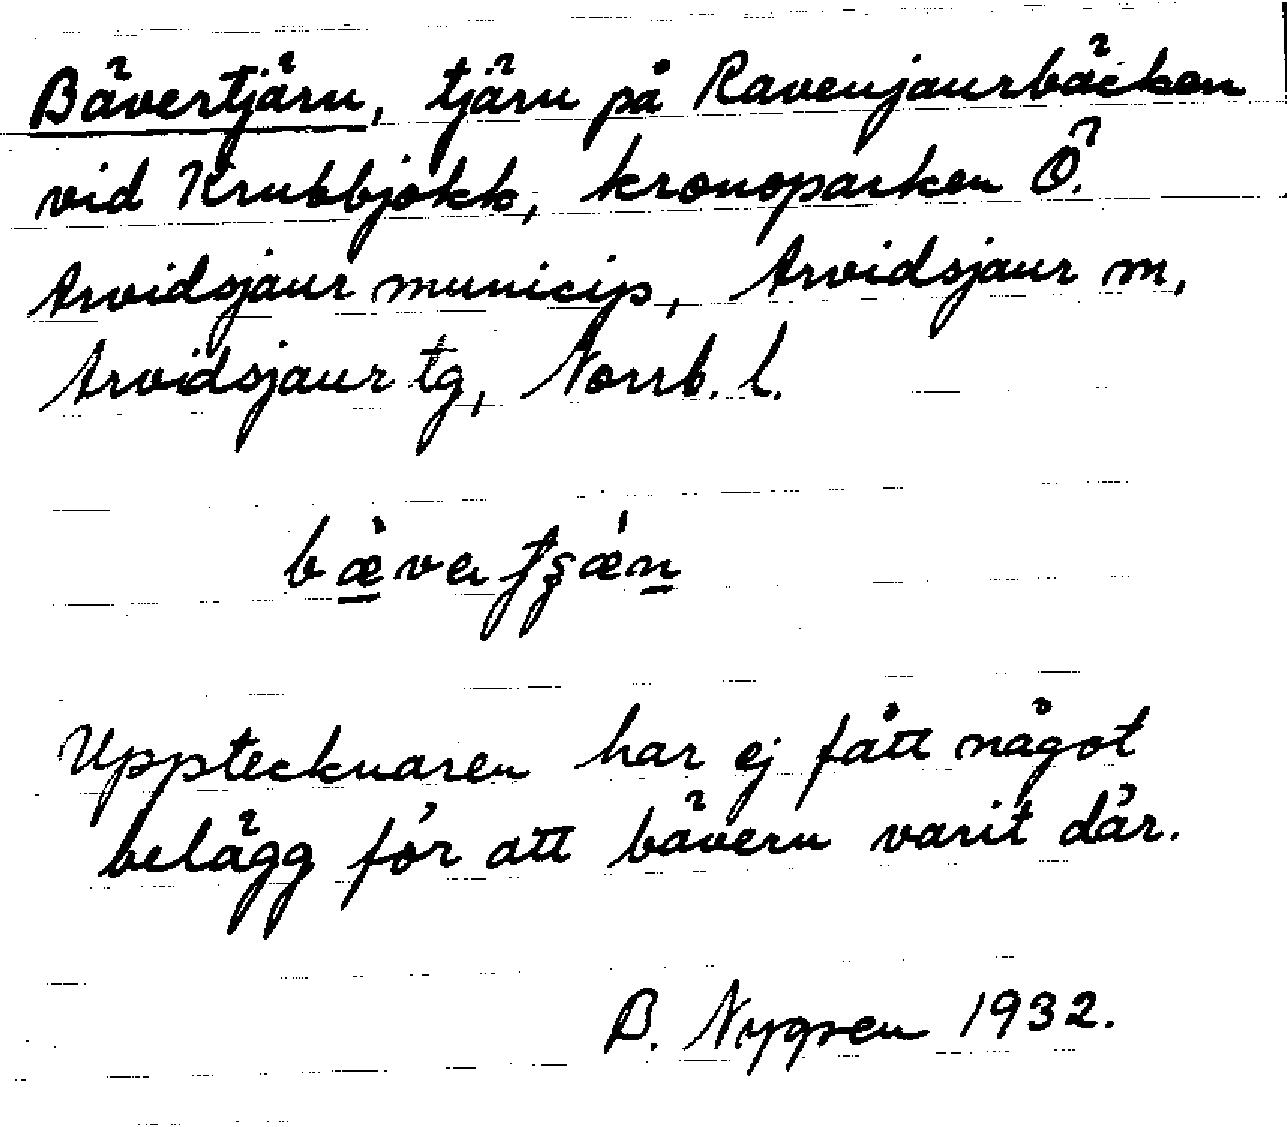 Bävertjärn, tjärn på Ravenjaurbäcken
vid Krubbjokk, kronoparken Ö.
Arvidsjaur municip, Arvidsjaur m,
Arvidsjaur tg, Norrb. l.
Upptecknaren har ej fått något
belägg för att bävern varit där.
B. Nygren 1932.